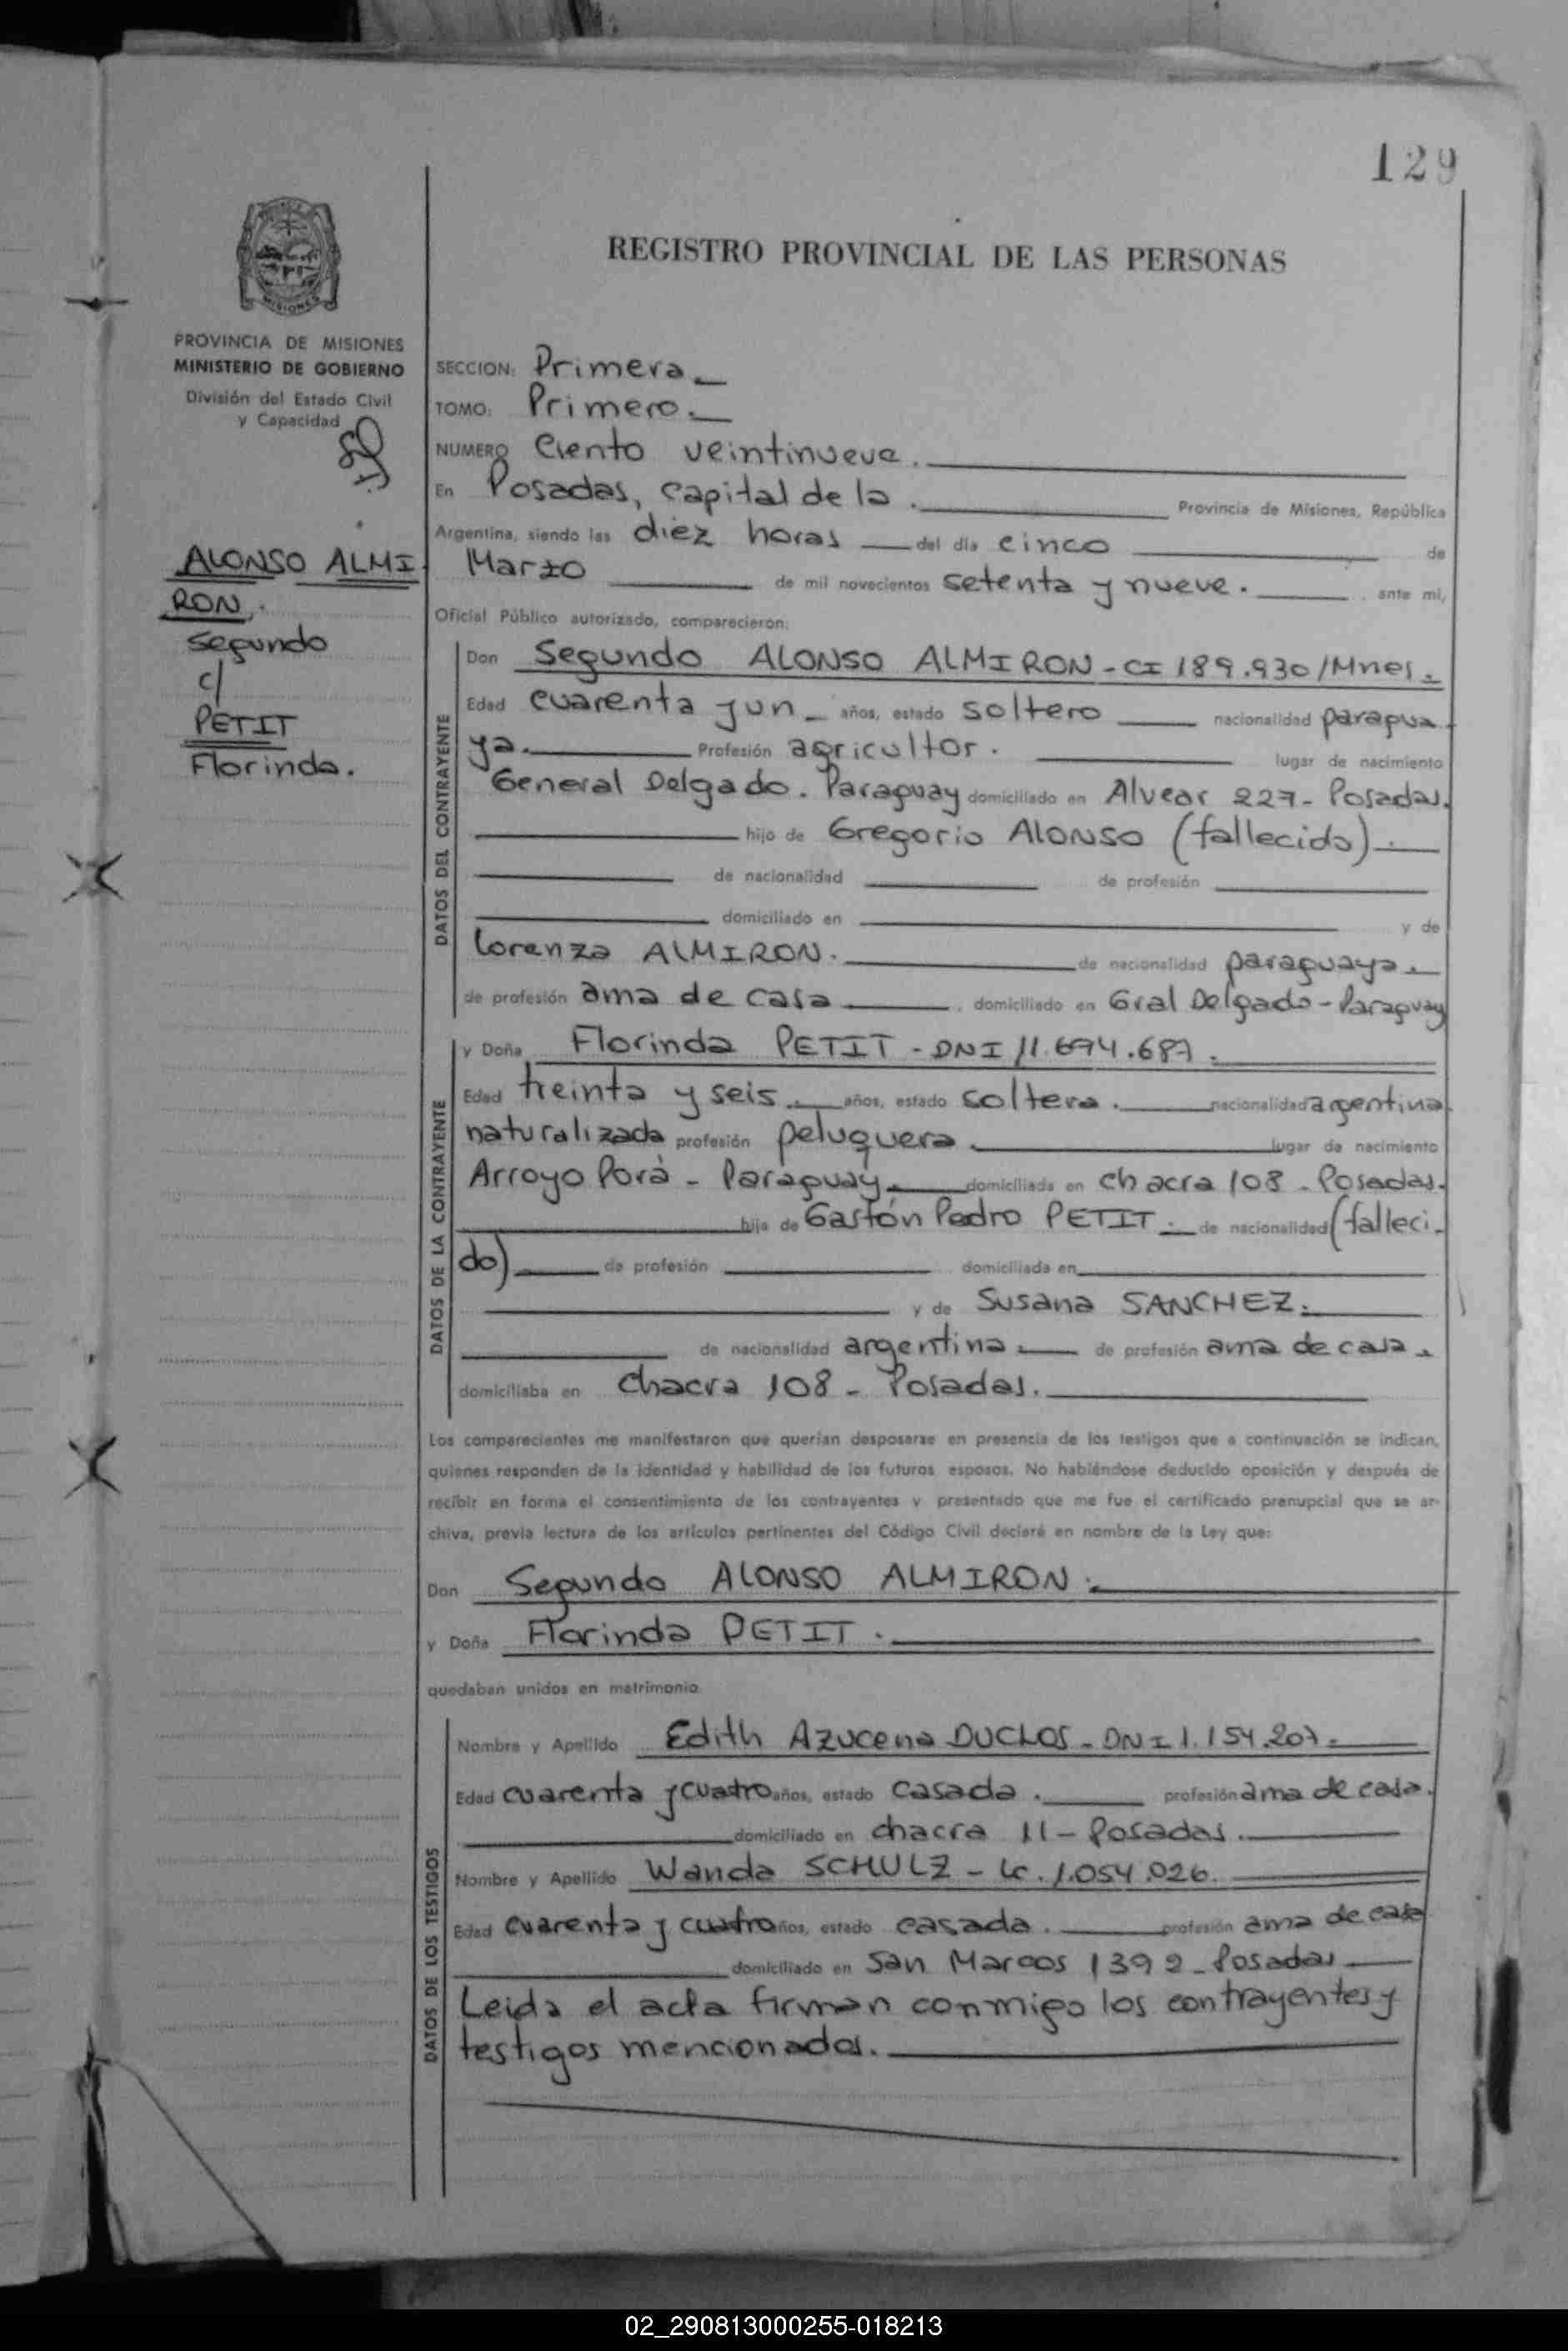 129
MISIONES
REGISTRO PROVINCIAL DE LAS PERSONAS
PROVINCIA DE MISIONES
MINISTERIO DE GOBIERNO
División del Estado Civil
y Capacidad
ALONSO ALMI
RON,
Segundo
c/
PETIT
Florinda.
SECCION: Primera
TOMO: Primero.
NUMERO Ciento veintinueve.
En Posadas, capital de la. Provincia de Misiones, República
Argentina, siendo las diez horas del día cinco de
Marzo de mil novecientos setenta y nueve. ante mi,
Oficial Público autorizado, comparecieron:
DATOS DEL CONTRAYENTE
Don Segundo ALONSO ALMIRON - CI 189.930/Mnes.
Edad cuarenta y un años, estado soltero nacionalidad paragua
ya. Profesión agricultor. lugar de nacimiento
General Delgado. Paraguay domiciliado en Alvear 227 - Posadas.
hijo de Gregorio ALONSO (fallecido).
de nacionalidad de profesión
domiciliado en y de
Lorenza ALMIRON. de nacionalidad paraguaya.
de profesión ama de casa, domiciliado en Gral Delgado - Paraguay
DATOS DE LA CONTRAYENTE
y Doña Florinda PETIT - DNI 11.694.687.
Edad treinta y seis. años, estado soltera. nacionalidad argentina
naturalizada profesión peluquera. lugar de nacimiento
Arroyo Porà - Paraguay. domiciliada en chacra 108 - Posadas.
hija de Gastón Pedro PETIT. de nacionalidad (falleci-
do) de profesión domiciliada en
y de Susana SANCHEZ.
de nacionalidad argentina. de profesión ama de casa.
domiciliaba en chacra 108 - Posadas.
Los comparecientes me manifestaron que querían desposarse en presencia de los testigos que a continuación se indican,
quienes responden de la identidad y habilidad de los futuros esposos. No habiéndose deducido oposición y después de
recibir en forma el consentimiento de los contrayentes y presentado que me fue el certificado prenupcial que se ar-
chiva, previa lectura de los artículos pertinentes del Código Civil declaré en nombre de la Ley que:
Don Segundo ALONSO ALMIRON.
y Doña Florinda PETIT.
quedaban unidos en matrimonio.
DATOS DE LOS TESTIGOS
Nombre y Apellido Edith Azucena DUCLOS - DNI 1.154.207.
Edad cuarenta y cuatro años, estado casada. profesión ama de casa.
domiciliado en chacra 11 - Posadas.
Nombre y Apellido Wanda SCHULZ - Lc. 1.054.026.
Edad cuarenta y cuatro años, estado casada. profesión ama de casa
domiciliado en San Marcos 1392 - Posadas
Leida el acta firman conmigo los contrayentes y
testigos mencionados.
02_290813000255-018213